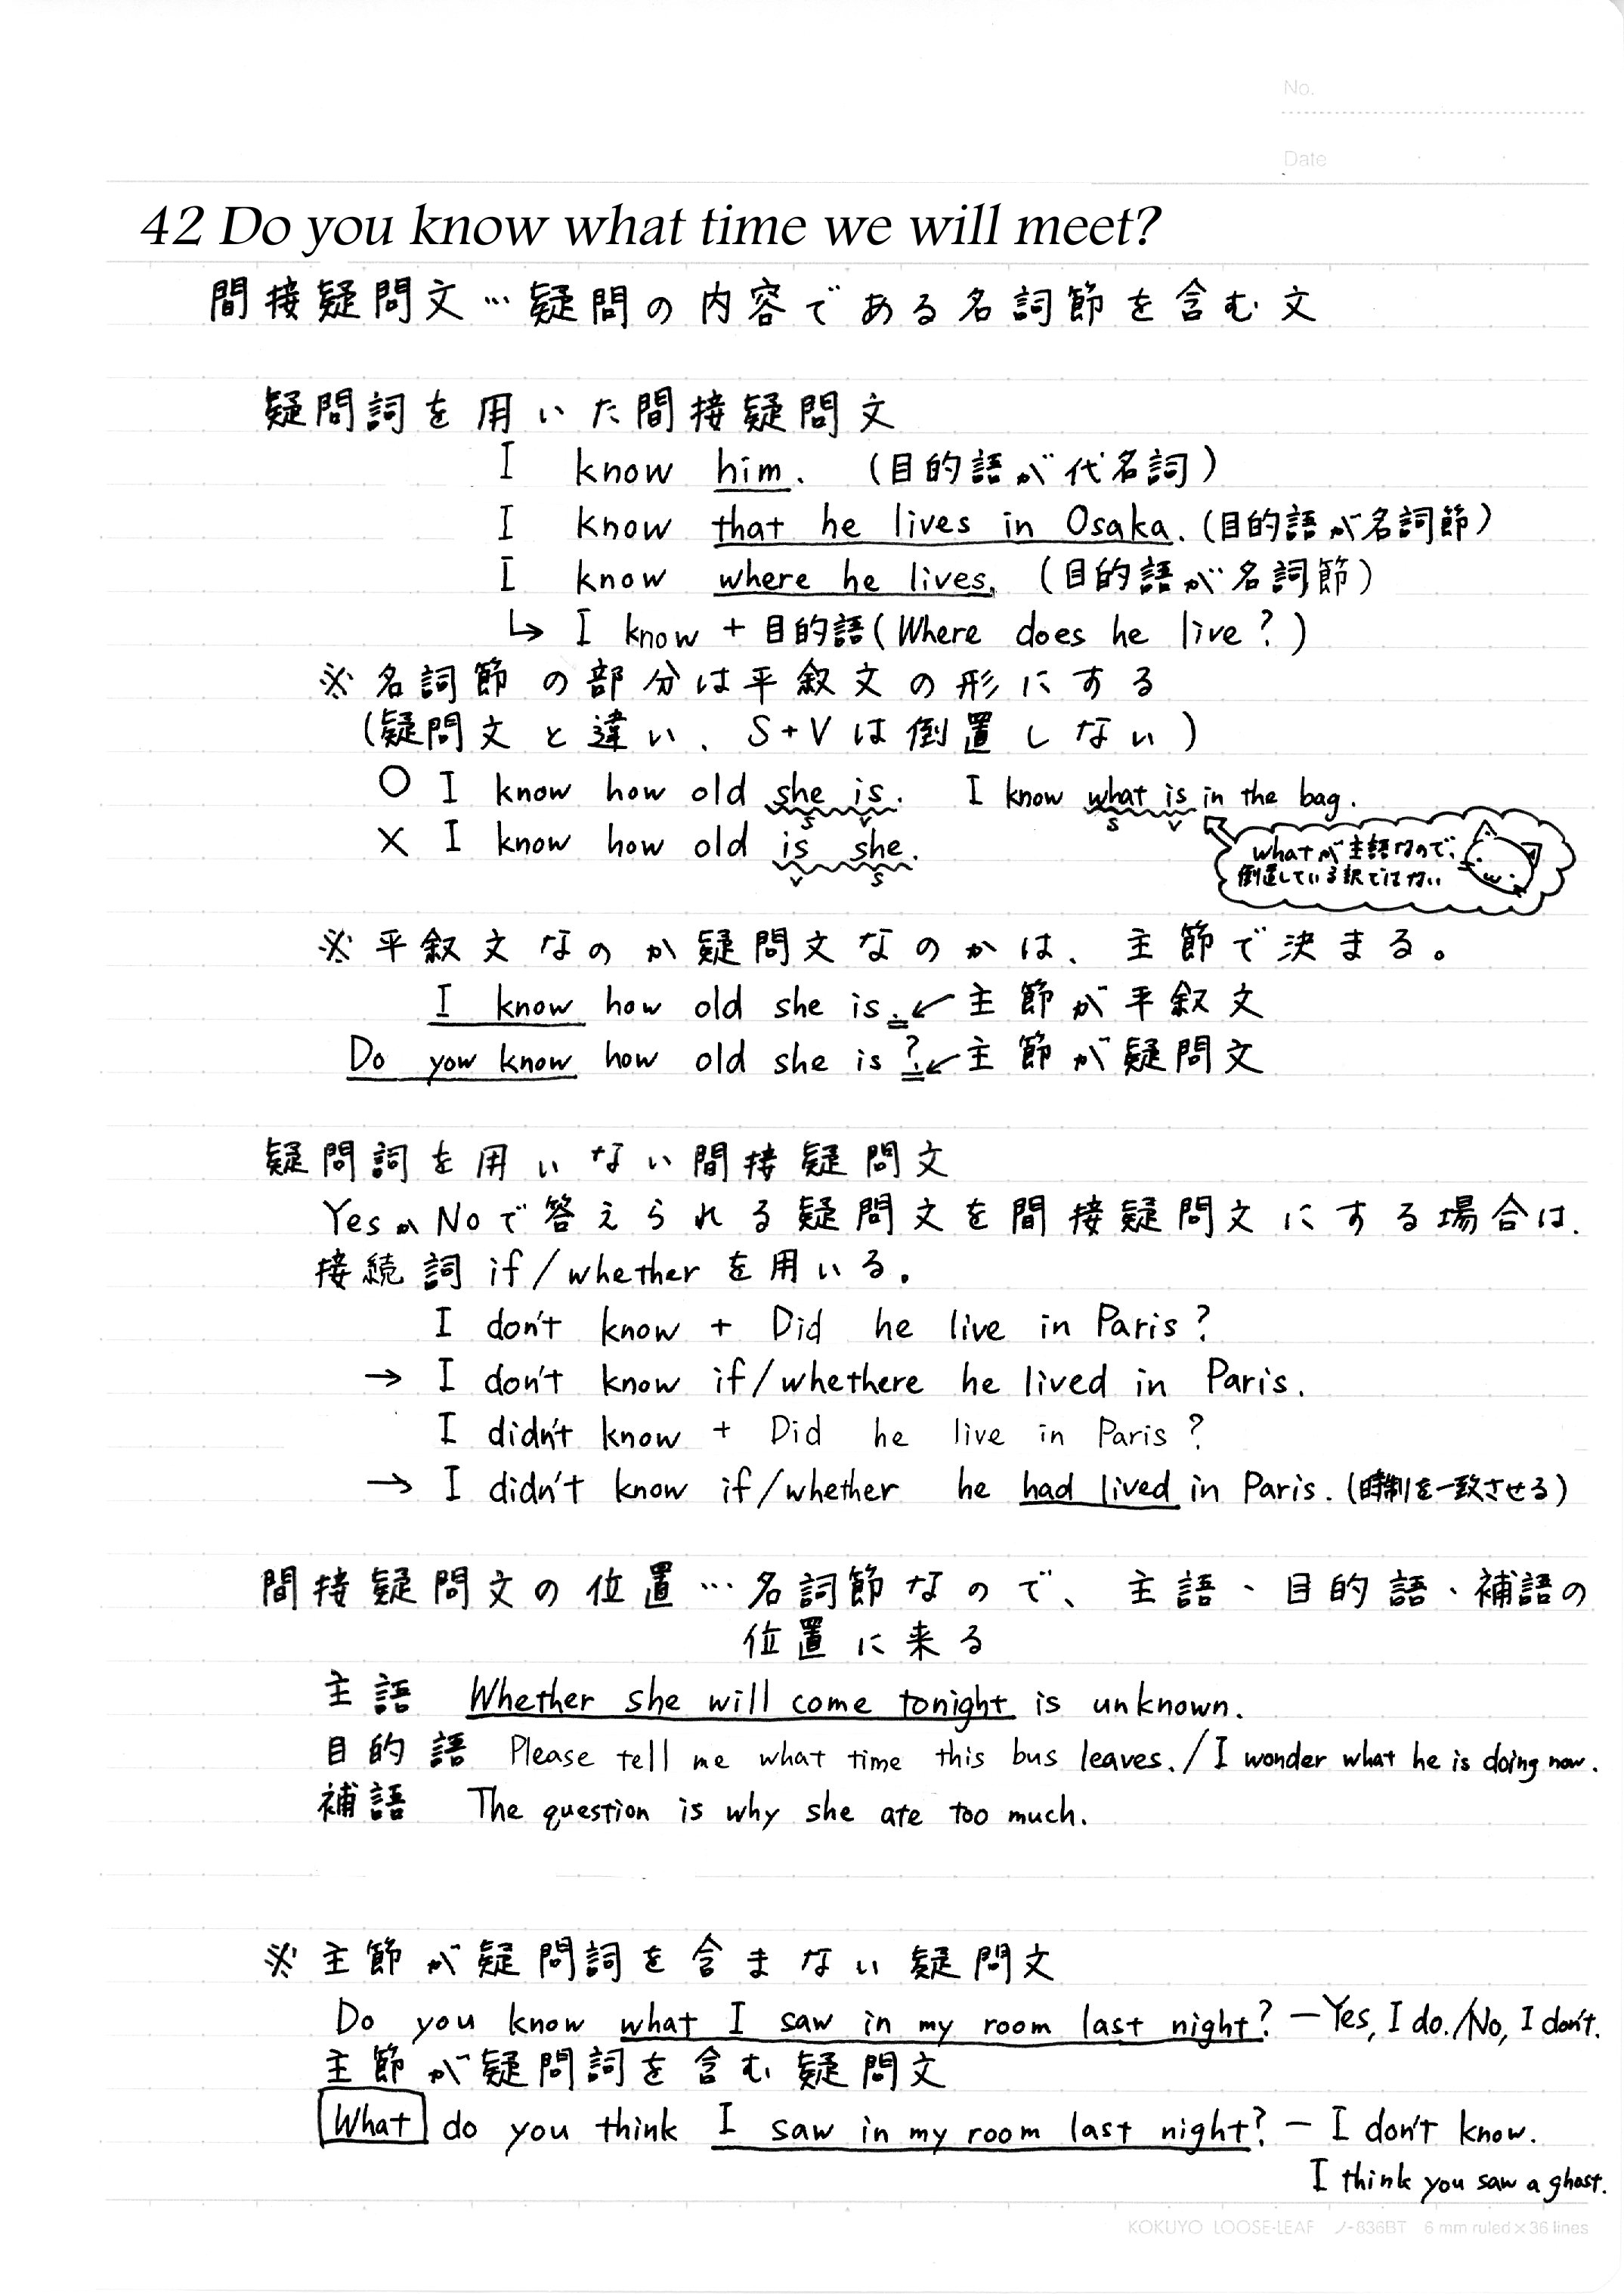 No.
Date
42 Do you know what time we will meet?
間接疑問文…疑問の内容である名詞節を含む文
疑問詞を用いた間接疑問文
I know him. (目的語が代名詞)
I know that he lives in Osaka. (目的語が名詞節)
I know where he lives. (目的語が名詞節)
↳ I know + 目的語(Where does he live?)
※名詞節の部分は平叙文の形にする
(疑問文と違い、S+Vは倒置しない)
○ I know how old she is. I know what is in the bag.
S V S V
× I know how old is she.
V S
whatが主語なので、
倒置している訳ではない
※平叙文なのか疑問文なのかは、主節で決まる。
I know how old she is. ← 主節が平叙文
Do you know how old she is? ← 主節が疑問文
疑問詞を用いない間接疑問文
YesかNoで答えられる疑問文を間接疑問文にする場合は、
接続詞if/whetherを用いる。
I don't know + Did he live in Paris?
→ I don't know if/whethere he lived in Paris.
I didn't know + Did he live in Paris?
→ I didn't know if/whether he had lived in Paris. (時制を一致させる)
間接疑問文の位置…名詞節なので、主語・目的語・補語の
位置に来る
主語 Whether she will come tonight is unknown.
目的語 Please tell me what time this bus leaves. / I wonder what he is doing now.
補語 The question is why she ate too much.
※主節が疑問詞を含まない疑問文
Do you know what I saw in my room last night? — Yes, I do. /No, I don't.
主節が疑問詞を含む疑問文
What do you think I saw in my room last night? — I don't know.
I think you saw a ghost.
KOKUYO LOOSE-LEAF ノ-836BT 6 mm ruled × 36 lines